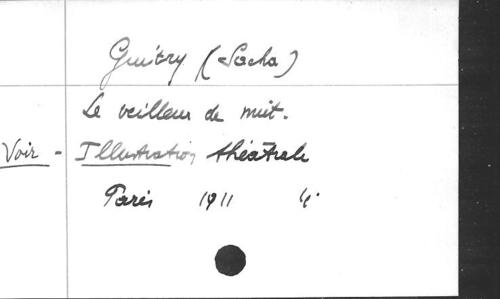 Guitry (Sacha)
Le veilleur de nuit.
Voir - Illustration théâtrale
Paris 1911 4°